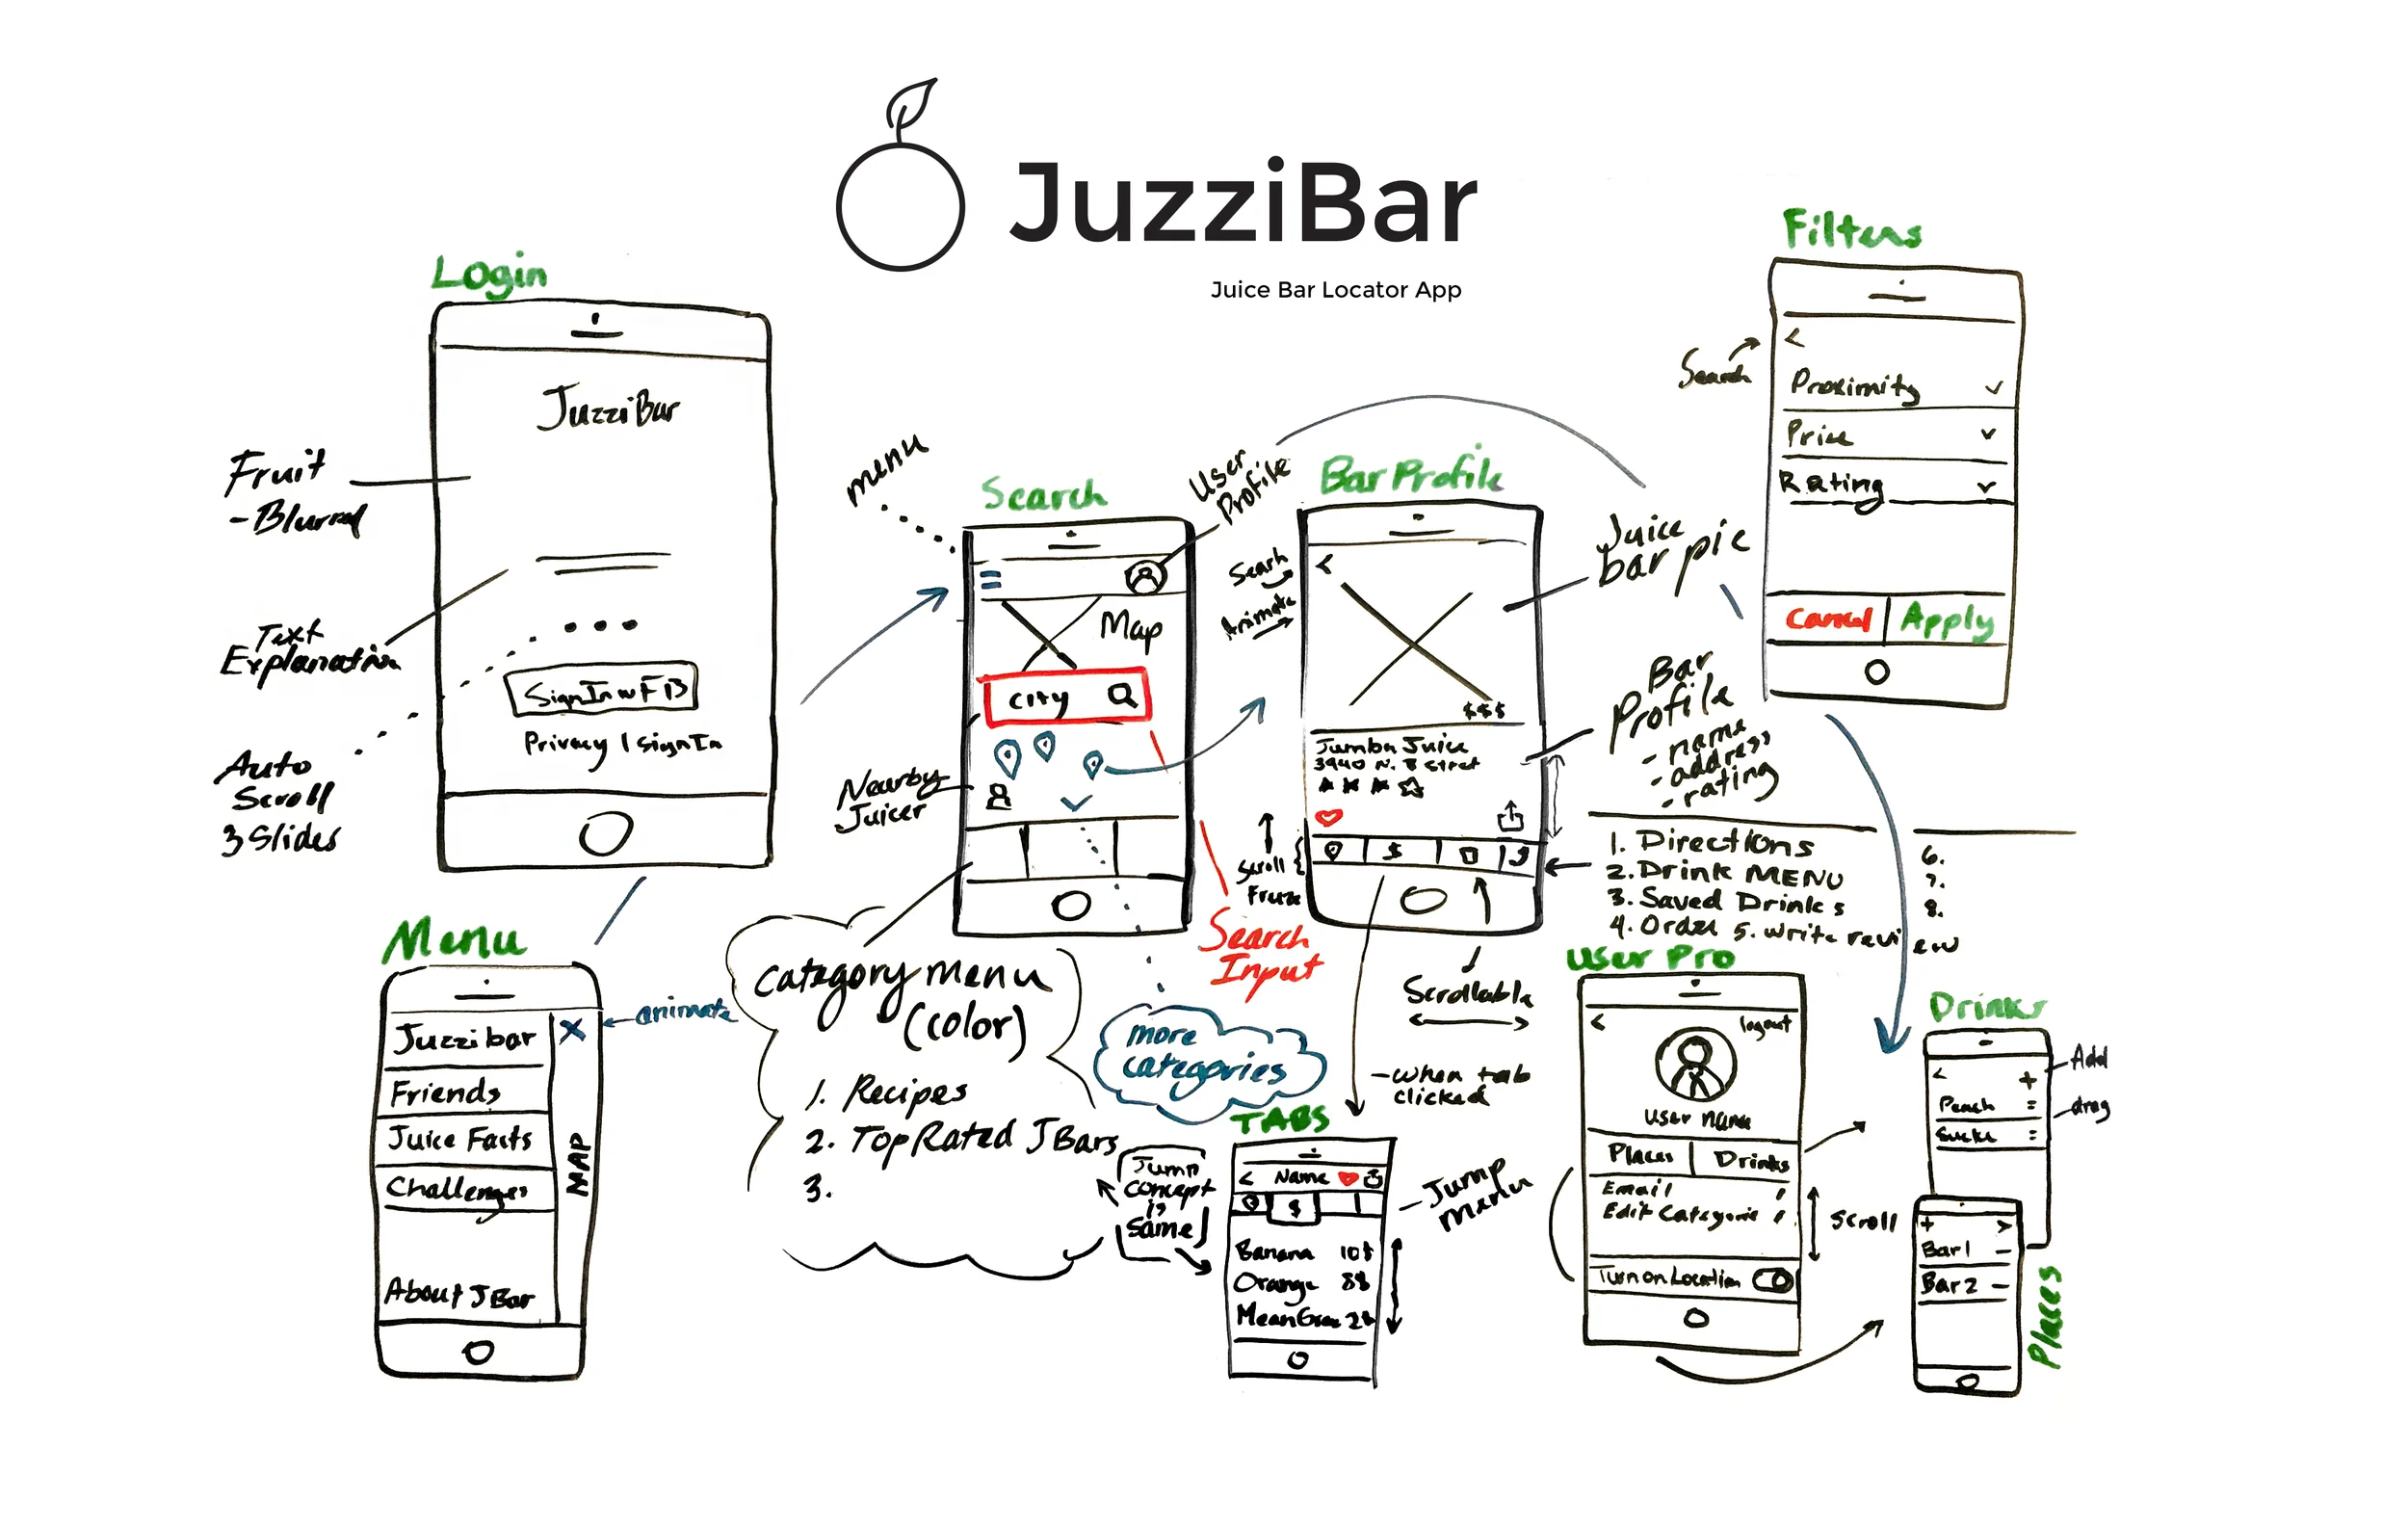 JuzziBar
Juice Bar Locator App
Login
JuzziBar
Sign In w FB
Privacy | Sign In
Fruit
- Blurred
Text
Explanation
Auto
Scroll
3 Slides
Menu
Juzzibar
Friends
Juice Facts
Challenges
About JBar
X
MAP
animate
menu
Search
User
Profile
Map
City
Nearby
Juicer
Search
Input
Category menu
(color)
1. Recipes
2. Top Rated JBars
3.
more
categories
Bar Profile
Search
Animate
<
$$$
Jumba Juice
3940 N. B Street
$
Scroll
Freeze
Juice
bar pic
Bar
Profile
- name
- address
- rating
1. Directions
2. Drink MENU
3. Saved Drinks
4. Order 5. write review
6.
7.
8.
Scrollable
- when tab
clicked
TABS
< Name
$
Banana 10$
Orange 8$
Jump
concept
is
same
Jump
menu
Filters
Search
<
Proximity
Price
Rating
Cancel Apply
User Pro
< logout
User Name
Places | Drinks
Email
Edit Categorie
Turn on Location
Scroll
Drinks
< +
Peach =
=
Add
drag
+ >
Bar 1 -
Bar 2 -
Places